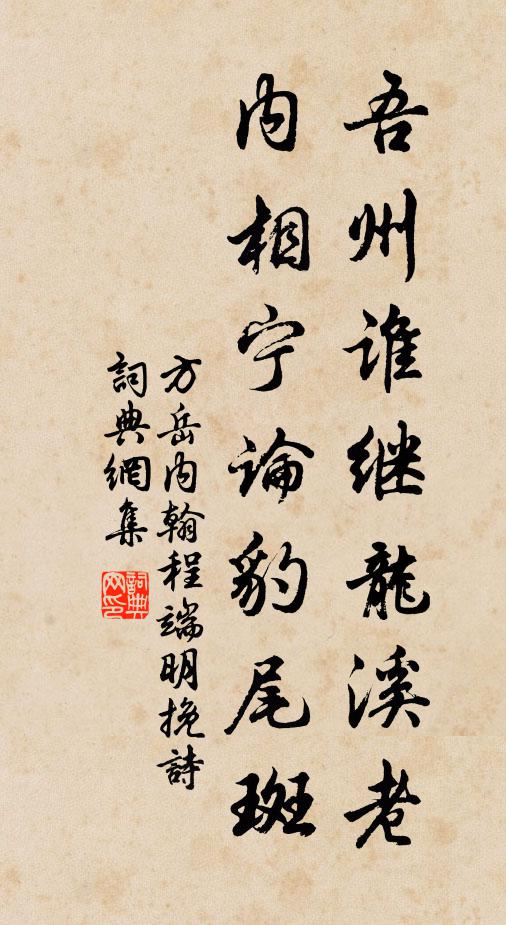 吾州谁继龍溪老
内相宁論豹尾斑
方岳内翰程端明挽詩
詞典網集
詞典网印